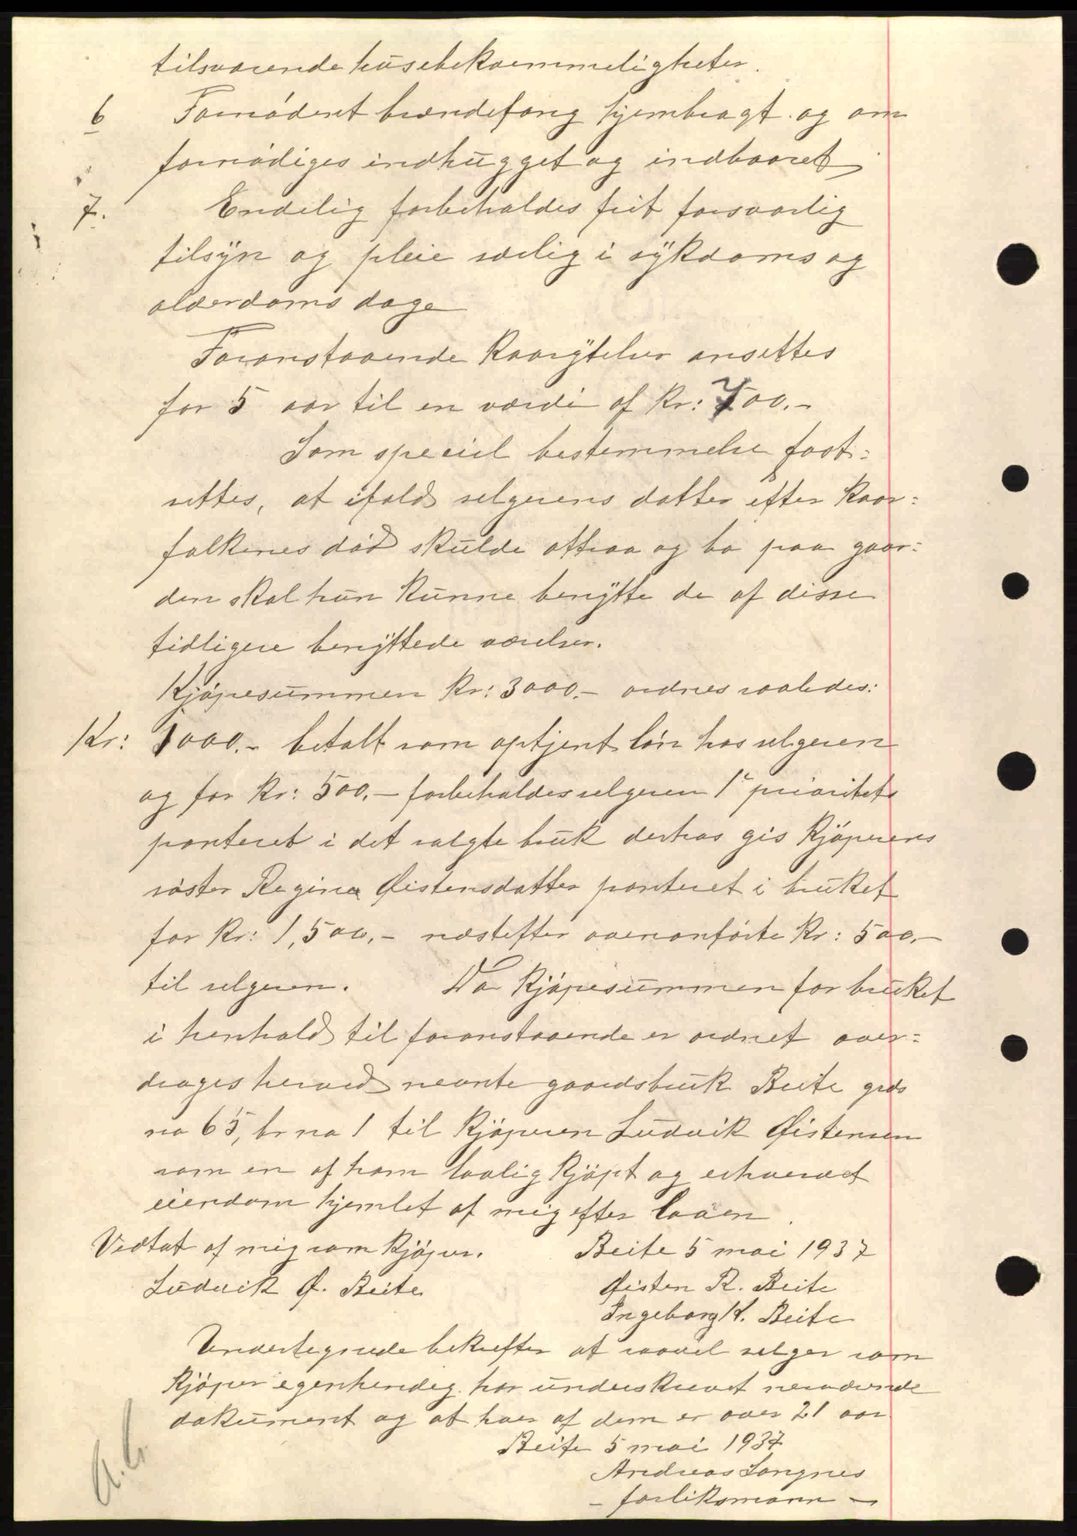 tilsvarende husebekvemmeligheter.
6 Fornødent brendefang hjembragt og om
fornødiges indhugget og indbaaret
7. Endelig forbeholdes frit forsvarlig
tilsyn og pleie særlig i sykdoms og
alderdoms dage
Foranstaaende kaarytelser ansettes
for 5 aar til en værdi af kr: 700.-
Som speciel bestemmelse fast=
settes, at ifald selgerens datter efter kaar=
folkenes död skulde attraa og bo paa gaar=
den skal hun kunne benytte de af disse
tidligere benyttede værelser.
Kjöpesummen kr: 3000.- ordnes saaledes:
Kr: 1000.- betalt som optjent lön hos selgeren
og for kr: 500.- forbeholdes selgeren 1ste prioritets
panteret i det solgte bruk derhos gis kjöperens
söster Regine Øistensdatter panteret i bruket
for kr: 1,500.- næstefter ovenanförte kr: 500.-
til selgeren. Da kjöpesummen for bruket
i henhold til foranstaaende er ordnet over=
drages herved nevnte gaardsbruk Beite grds
no 65, br no 1 til kjöperen Ludvik Øistensen
som en af ham lovlig kjöpt og erhvervet
eiendom hjemlet af mig efter loven.
Vedtat af mig som kjöper. Beite 5 mai 1937
Ludvik Ø. Beite Øisten R. Beite
Ingeborg K. Beite
Undertegnede bekrefter at saavel selger som
kjöper egenhendig har underskrevet nerværende
dokument og at hver af dem er over 21 aar
Beite 5 mai 1937
Andreas Langnes
- forliksmann -